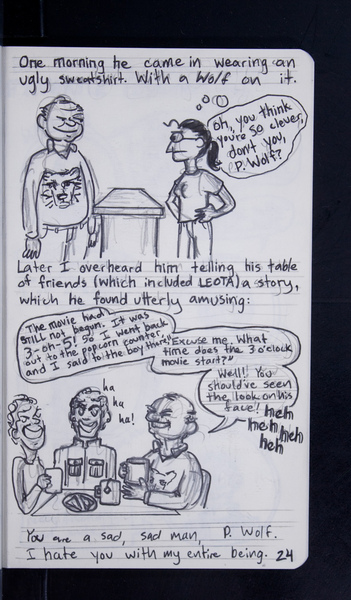 One morning he came in wearing an
ugly sweatshirt. With a Wolf on it.
oh, you think
you're so clever,
don't you,
P. Wolf?
Later I overheard him telling his table
of friends (which included LEOTA) a story,
which he found utterly amusing:
The movie had
still not begun. It was
3-oh-5! So I went back
out to the popcorn counter,
and I said to the boy there,
"Excuse me. What
time does the 3 o'clock
movie start?"
Well! You
should've seen
the look on his
face!
heh
heh heh
heh
ha
ha
ha!
You are a sad, sad man, P. Wolf.
I hate you with my entire being. 24